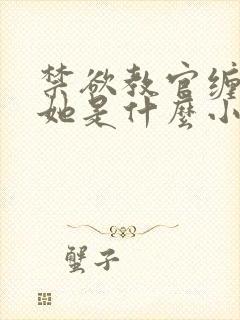 禁欲教官缠
她是什麼小
蟹子